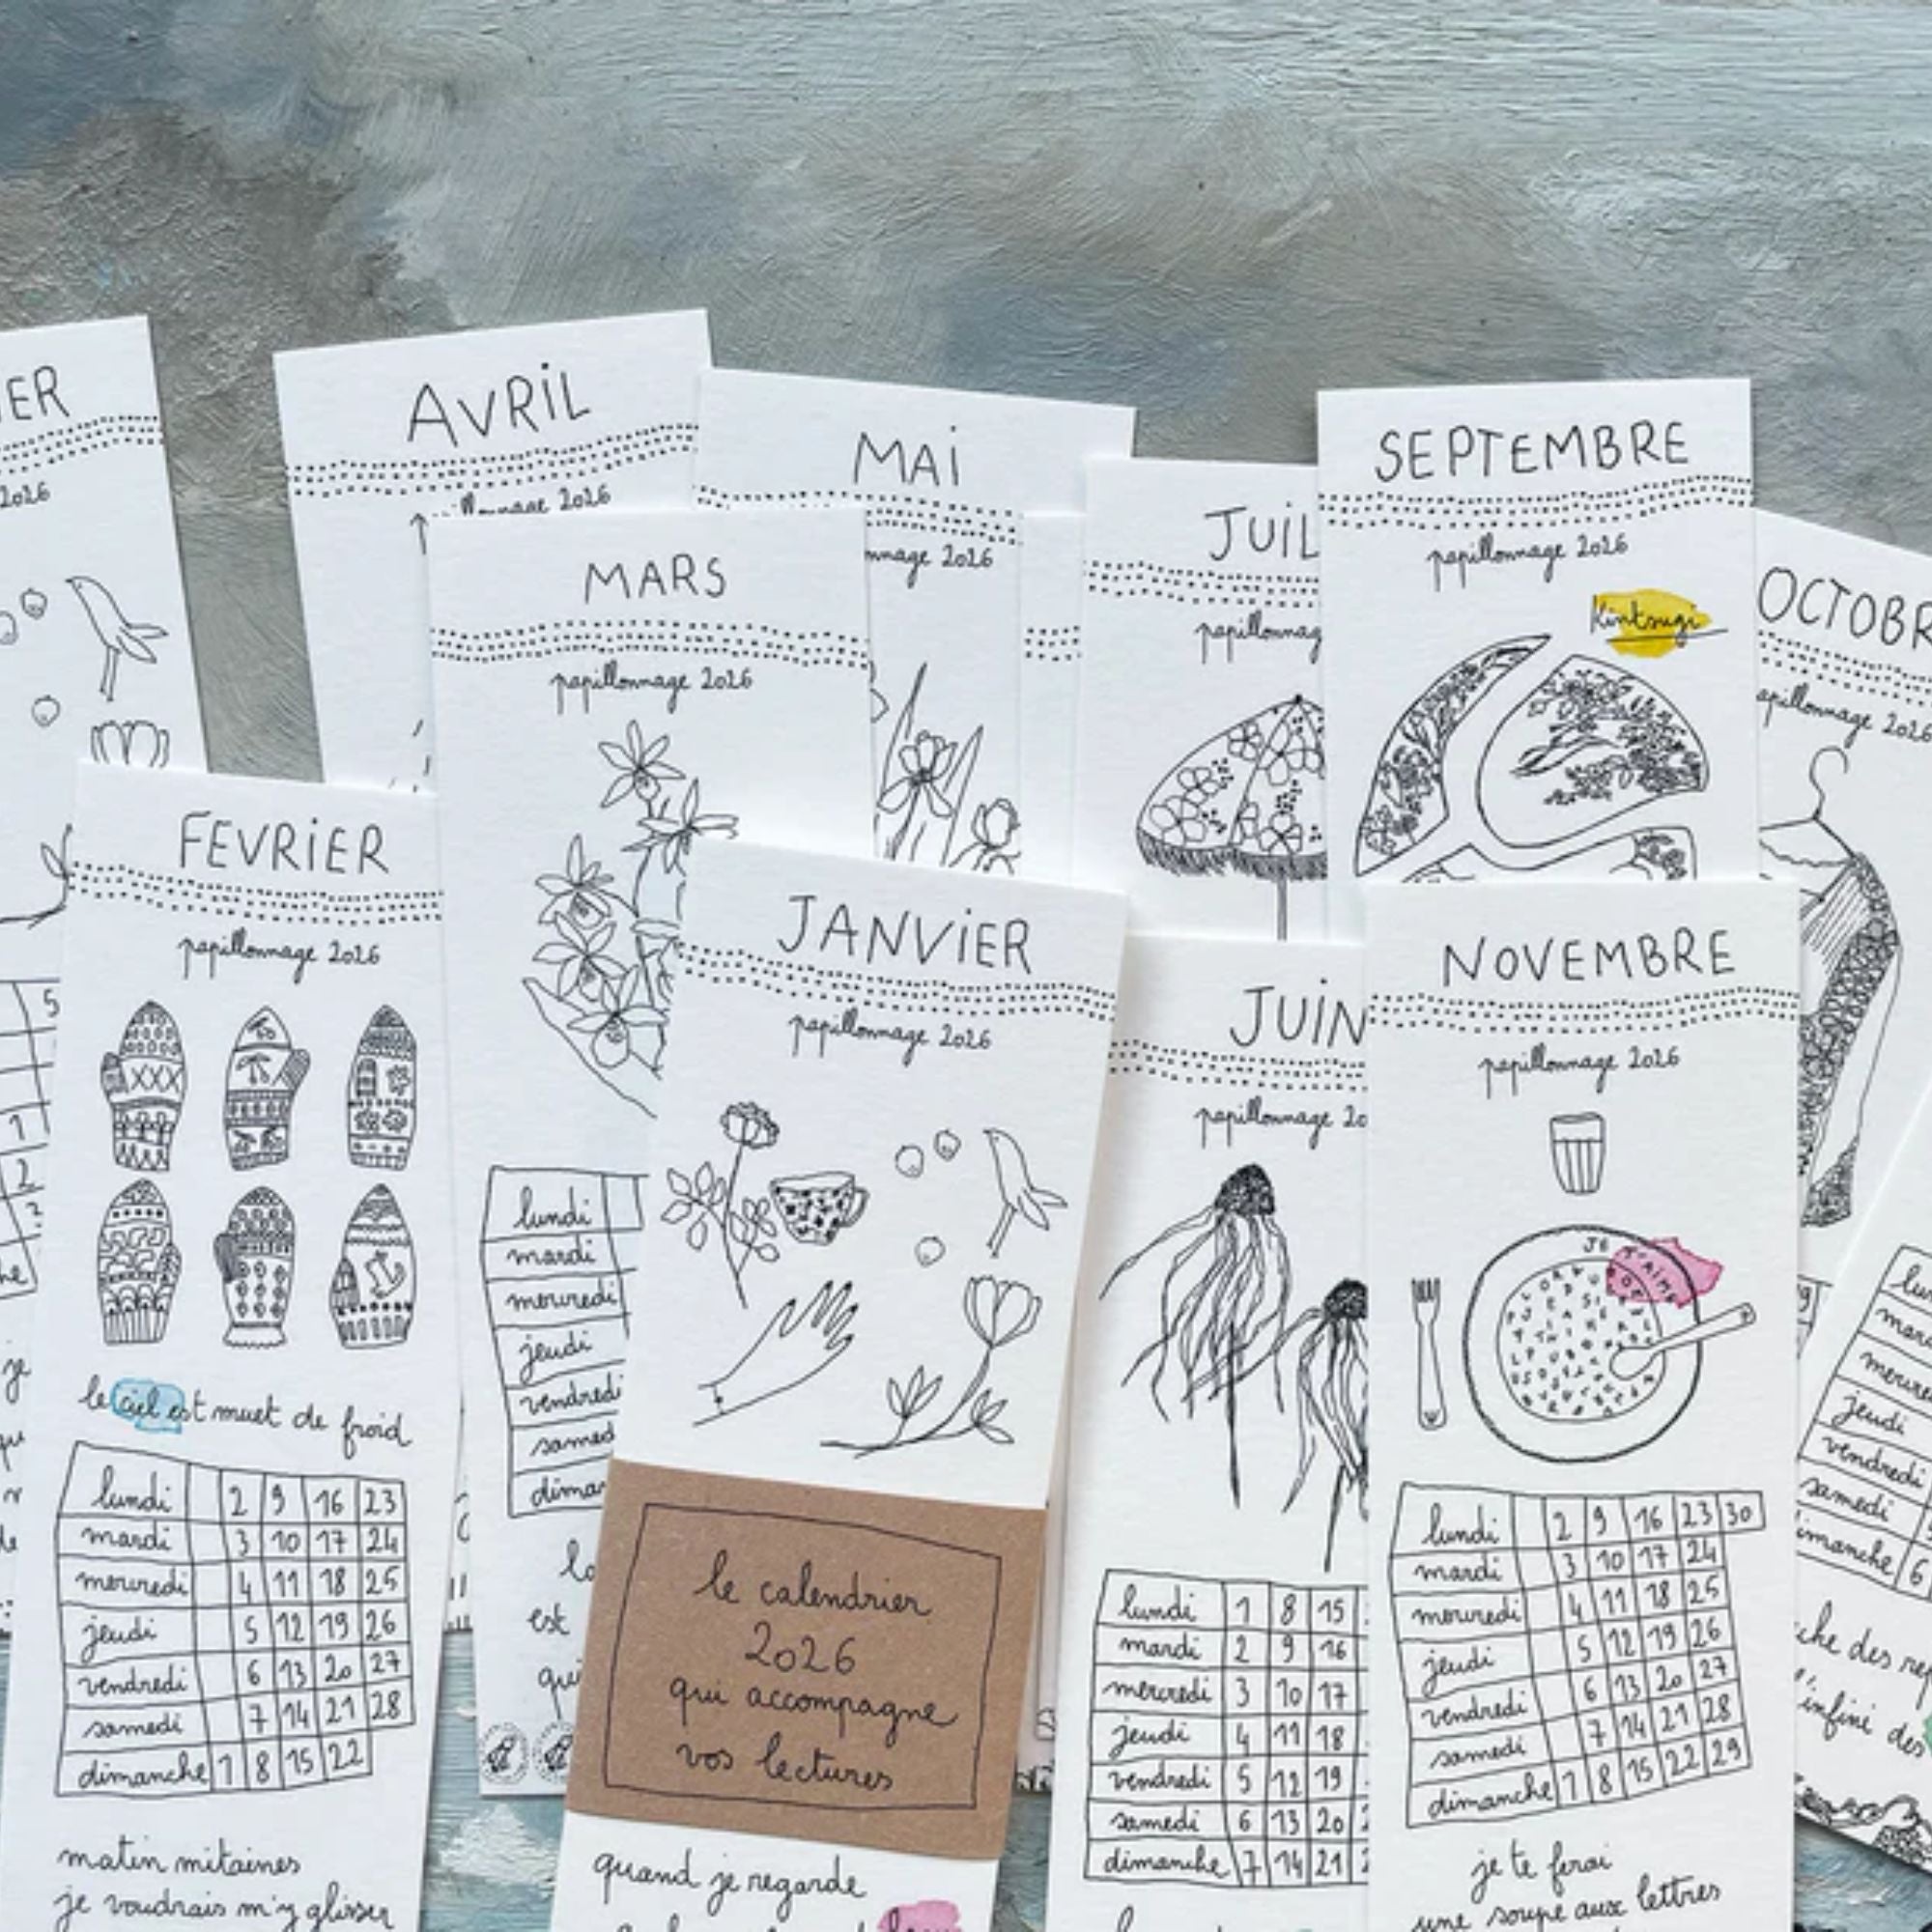 ER
2026
AVRiL
2026
MAi
2026
JUiL
SEPTEMBRE
papillonnage 2026
Kintsugi
OCTOBR
apillonnage 2026
MARS
papillonnage 2026
FEVRiER
papillonnage 2026
le ciel est muet de froid
lundi 2 9 16 23
mardi 3 10 17 24
mercredi 4 11 18 25
jeudi 5 12 19 26
vendredi 6 13 20 27
samedi 7 14 21 28
dimanche 1 8 15 22
matin mitaines
je voudrais m'y glisser
lundi
mardi
mercredi
jeudi
vendredi
samed
diman
est
qui
JANViER
papillonnage 2026
le calendrier
2026
qui accompagne
vos lectures
quand je regarde
JUiN
papillonnage 20
lundi 1 8 15
mardi 2 9 16
mercredi 3 10 17
jeudi 4 11 18
vendredi 5 12 19
samedi 6 13 20
dimanche 7 14 21
NOVEMBRE
papillonnage 2026
JE T'AIME
lundi 2 9 16 23 30
mardi 3 10 17 24
mercredi 4 11 18 25
jeudi 5 12 19 26
vendredi 6 13 20 27
samedi 7 14 21 28
dimanche 1 8 15 22 29
je te ferai
une soupe aux lettres
jeudi
vendredi
samedi
imanche 6
des
l'infini des